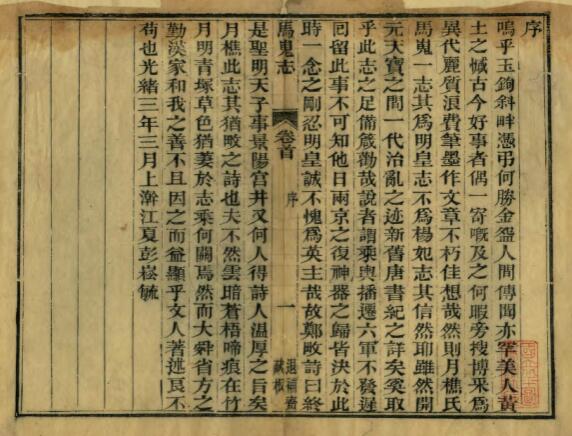 序
嗚乎玉鉤斜畔憑弔何勝金盌人間傳聞亦罕美人黃
土之憾古今好事者偶一寄嘅及之何暇旁搜博采爲
異代麗質浪費筆墨作文章不朽佳想哉然則月樵氏
馬嵬一志其爲明皇志不爲楊妃志其信然耶雖然開
元天寶之間一代治亂之迹新舊唐書紀之詳矣奚取
乎此志之足備箴勸哉說者謂乘輿播遷六軍不發遲
囘留此事不可知他日兩京之復神器之歸皆決於此
時一念之剛忍明皇誠不愧爲英主哉故鄭畋詩曰終
馬嵬志
卷首
序
一
是聖明天子事景陽宫井又何人得詩人溫厚之旨矣
月樵此志其猶畋之詩也夫不然雲暗蒼梧啼痕在竹
月明青塚草色猶萋於志乘何關焉然而大舜省方之
勤漢家和我之善不且因之而益顯乎文人著述良不
苟也光緒三年三月上澣江夏彭崧毓